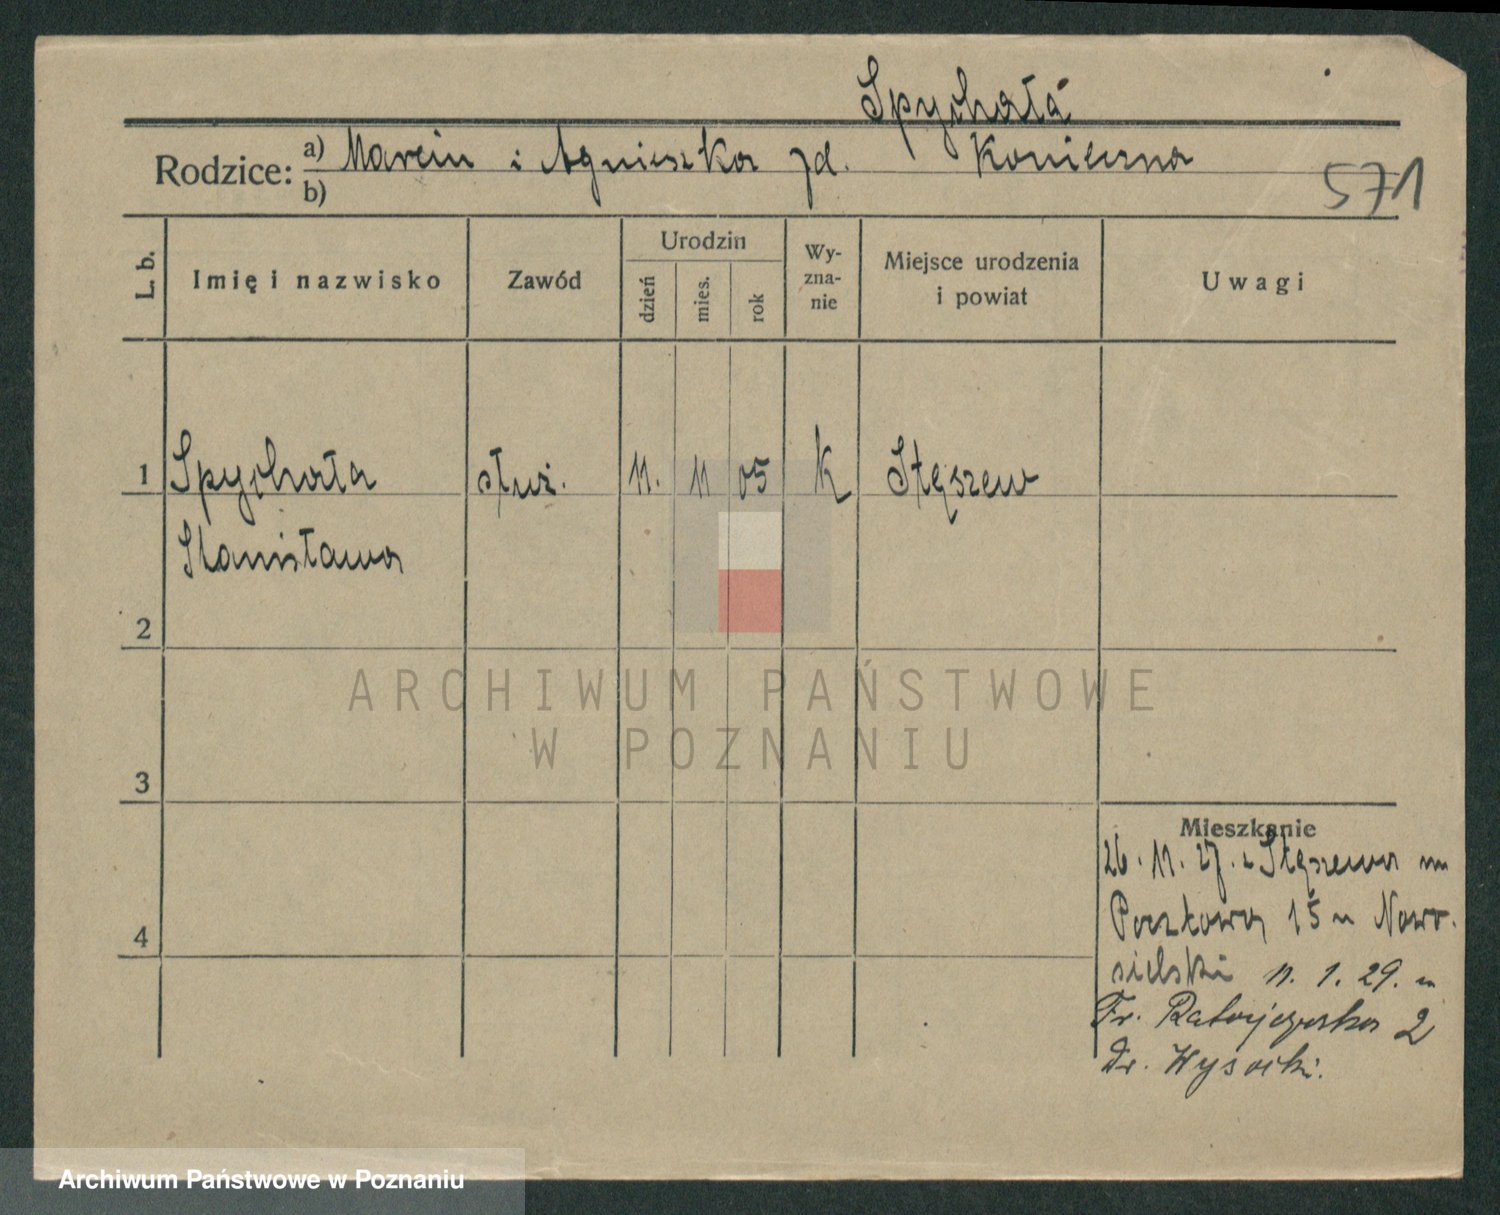 Spychała
Rodzice: a) Marcin i Agnieszka zd. Konieczna
b)
571
L. b.
Imię i nazwisko
Zawód
Urodzin
dzień
mies.
rok
Wy-
zna-
nie
Miejsce urodzenia
i powiat
Uwagi
1 Spychała służ. 11. 11 05 k Stęszew
Stanisława
2
3
4
Mieszkanie
26. 11. 27. z Stęszewa na
Pocztową 15 u Nowo-
sielski 11. 1. 29. u
Fr. Ratajczaka 2
Dr. Wysocki.
ARCHIWUM PAŃSTWOWE
W POZNANIU
Archiwum Państwowe w Poznaniu